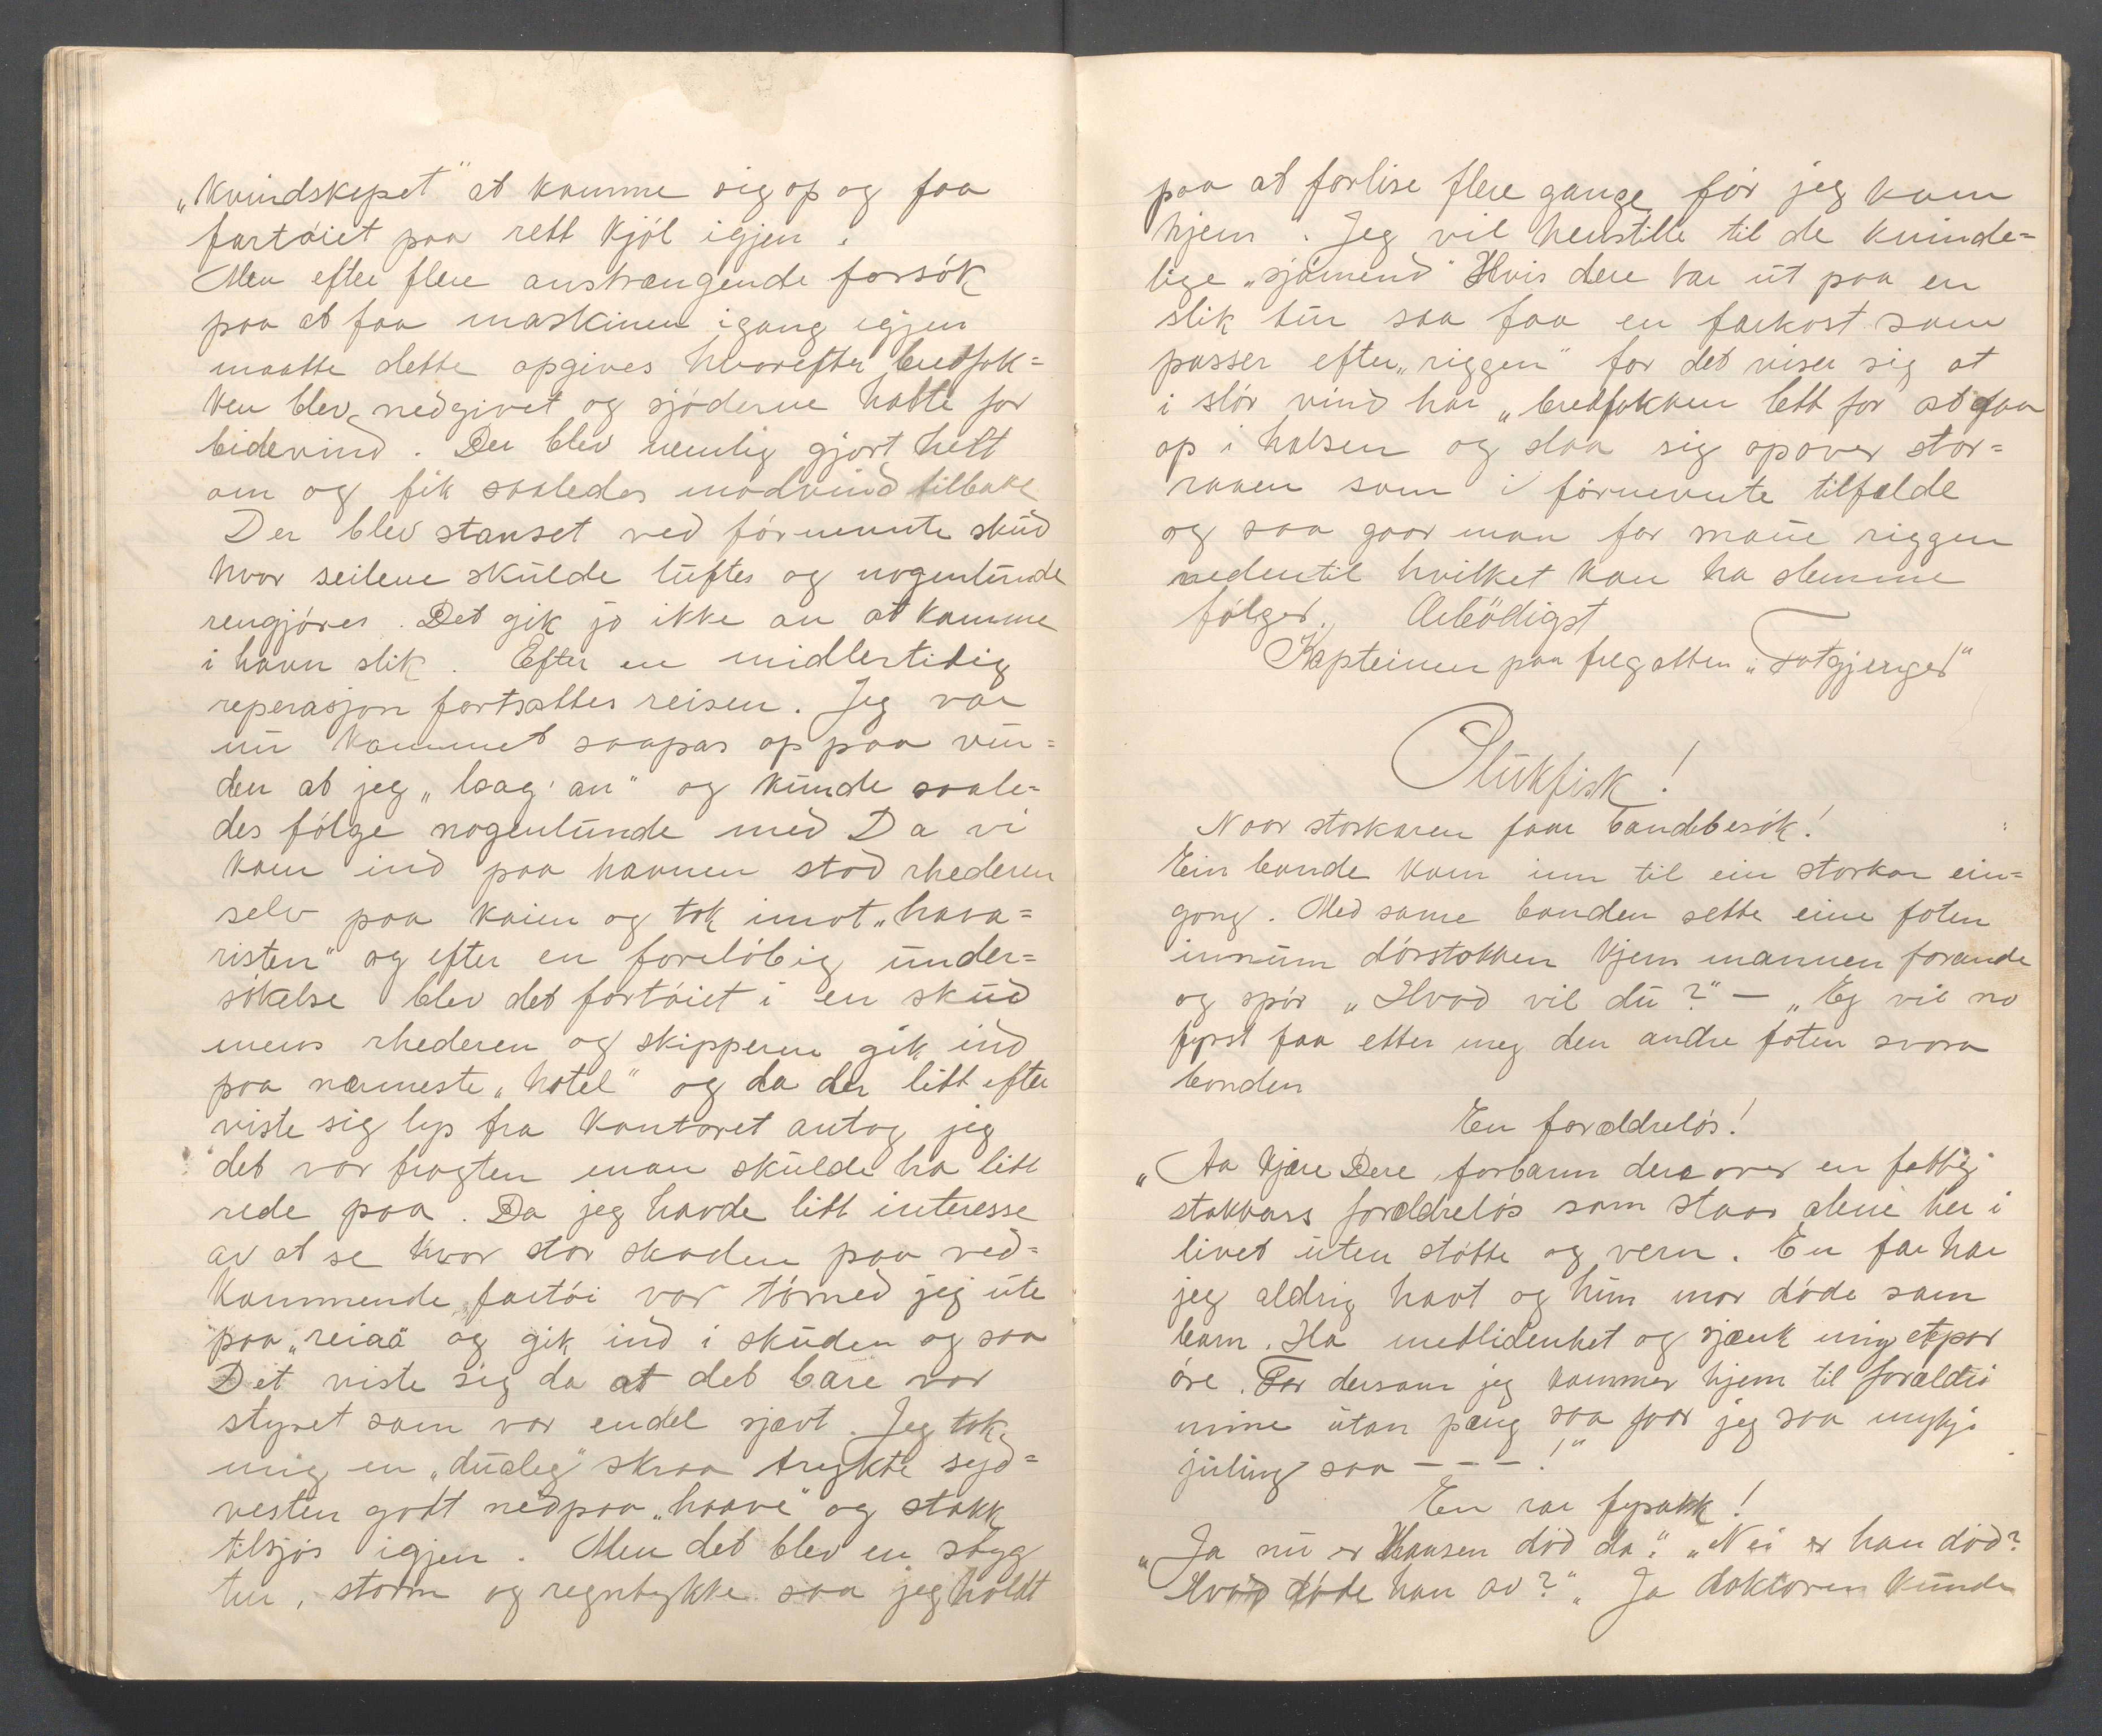 „Kvindskepet" at komme sig op og faa
fartøiet paa rett kjøl igjen.
Men efter flere anstrængende forsøk
paa at faa maskinen igang igjen
maatte dette opgives hvorefter bredfok-
ken blev nedgivet og sjøderne hatte for
bidevind. Der blev nemlig gjort helt
om og fik saaledes modvind tilbake
Der blev stanset ved førnemnte skud
hvor seilene skulde luftes og nogenlunde
rengjøres. Det gik jo ikke an at komme
i havn slik. Efter en midlertidig
reperasjon fortsattes reisen. Jeg var
nu kommet saapas op paa vin-
den at jeg „laag' an" og kunde saale-
des følge nogenlunde med Da vi
kom ind paa havnen stod rhederen
selv paa kaien og tok imot „hava-
risten" og efter en foreløbig under-
søkelse blev det fortøiet i en skud
mens rhederen og skipperen gik ind
paa nærmeste „hotel" og da der litt efter
viste sig lys fra kontoret antog jeg
det var fragten man skulde ha litt
rede paa. Da jeg havde litt interesse
av at se hvor stor skaden paa ved-
kommende fartøi var tørned jeg ute
paa „reiaa" og gik ind i skuden og saa
Det viste sig da at det bare var
styret som var endel sjævt. Jeg tok
mig en „dualeg" skraa trykte syd-
vesten godt nedpaa „haave" og stakk
tilsjøs igjen. Men det blev en styg
tur, storm og regntykke saa jeg holdt
paa at forlise flere gange før jeg kom
hjem. Jeg vil henstille til de kvinde-
lige „sjømend" Hvis dere tar ut paa en
slik tur saa faa en farkost som
passer efter „riggen" for det viser sig at
i slør vind har „bredfokken lett for at gaa
op i halsen og slaa sig opover stor-
raaen som i førnevnte tilfælde
og saa gaar man for mœie riggen
nedentil hvilket kan ha slemme
følger. Ærbödigst
Kapteinen paa fregatten „Fotgjenger"
Plukfisk!
Naar storkaren faar bondebesøk!
Ein bonde kom inn til ein storkar ein-
gong. Med same bonden sette eine foten
innum dørstokken kjem mannen forande
og spør „Hvad vil du?" — „Eg vil no
fyrst faa etter meg den andre foten svora
bonden
En forældreløs!
„Aa kjære Dere forbarm dere over en fattig
stakkars forældreløs som staar alene her i
livet uten støtte og vern. En far har
jeg aldrig havt og hun mor døde som
barn. Ha metlidenhet og sjænk mig etpar
øre. For dersom jeg kommer hjem til forældri
mine utan pæng saa faar jeg saa mykje
juling saa - - - !"
En rar fysakk!
„Ja nu er Hansen død da". „Nei er han død?
Hvad døde han av?" „Ja doktoren kunde